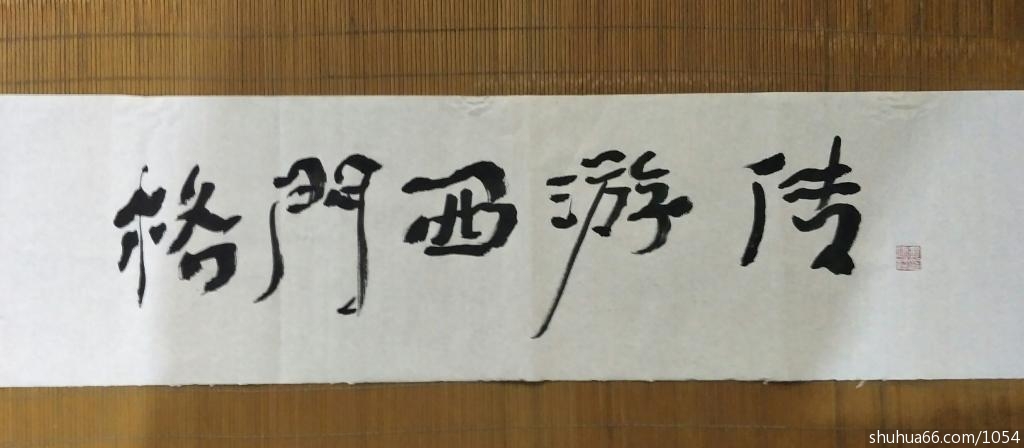 格門西游传
shuhua66.com/1054